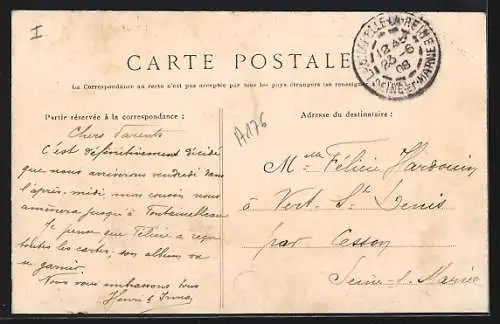 I
CARTE POSTALE
La Correspondance au recto n'est pas acceptée par tous les pays étrangers (se renseigner
LA CHAPELLE-LA-REINE
12 45
23-6
08
SEINE-ET-MARNE
Partie réservée à la correspondance :
Adresse du destinataire :
A176
Chers Parents
C'est définitivement décidé
que nous arriverons vendredi dans
l'après-midi mon cousin nous
amènera jusqu'à Fontainebleau
Je pense que Félicie a reçu
toutes les cartes, son album va
se garnir.
Nous vous embrassons tous
Henri & Irma
Melle Félicie Hardouin
à Vert St Denis
par Cesson
Seine-&-Marne